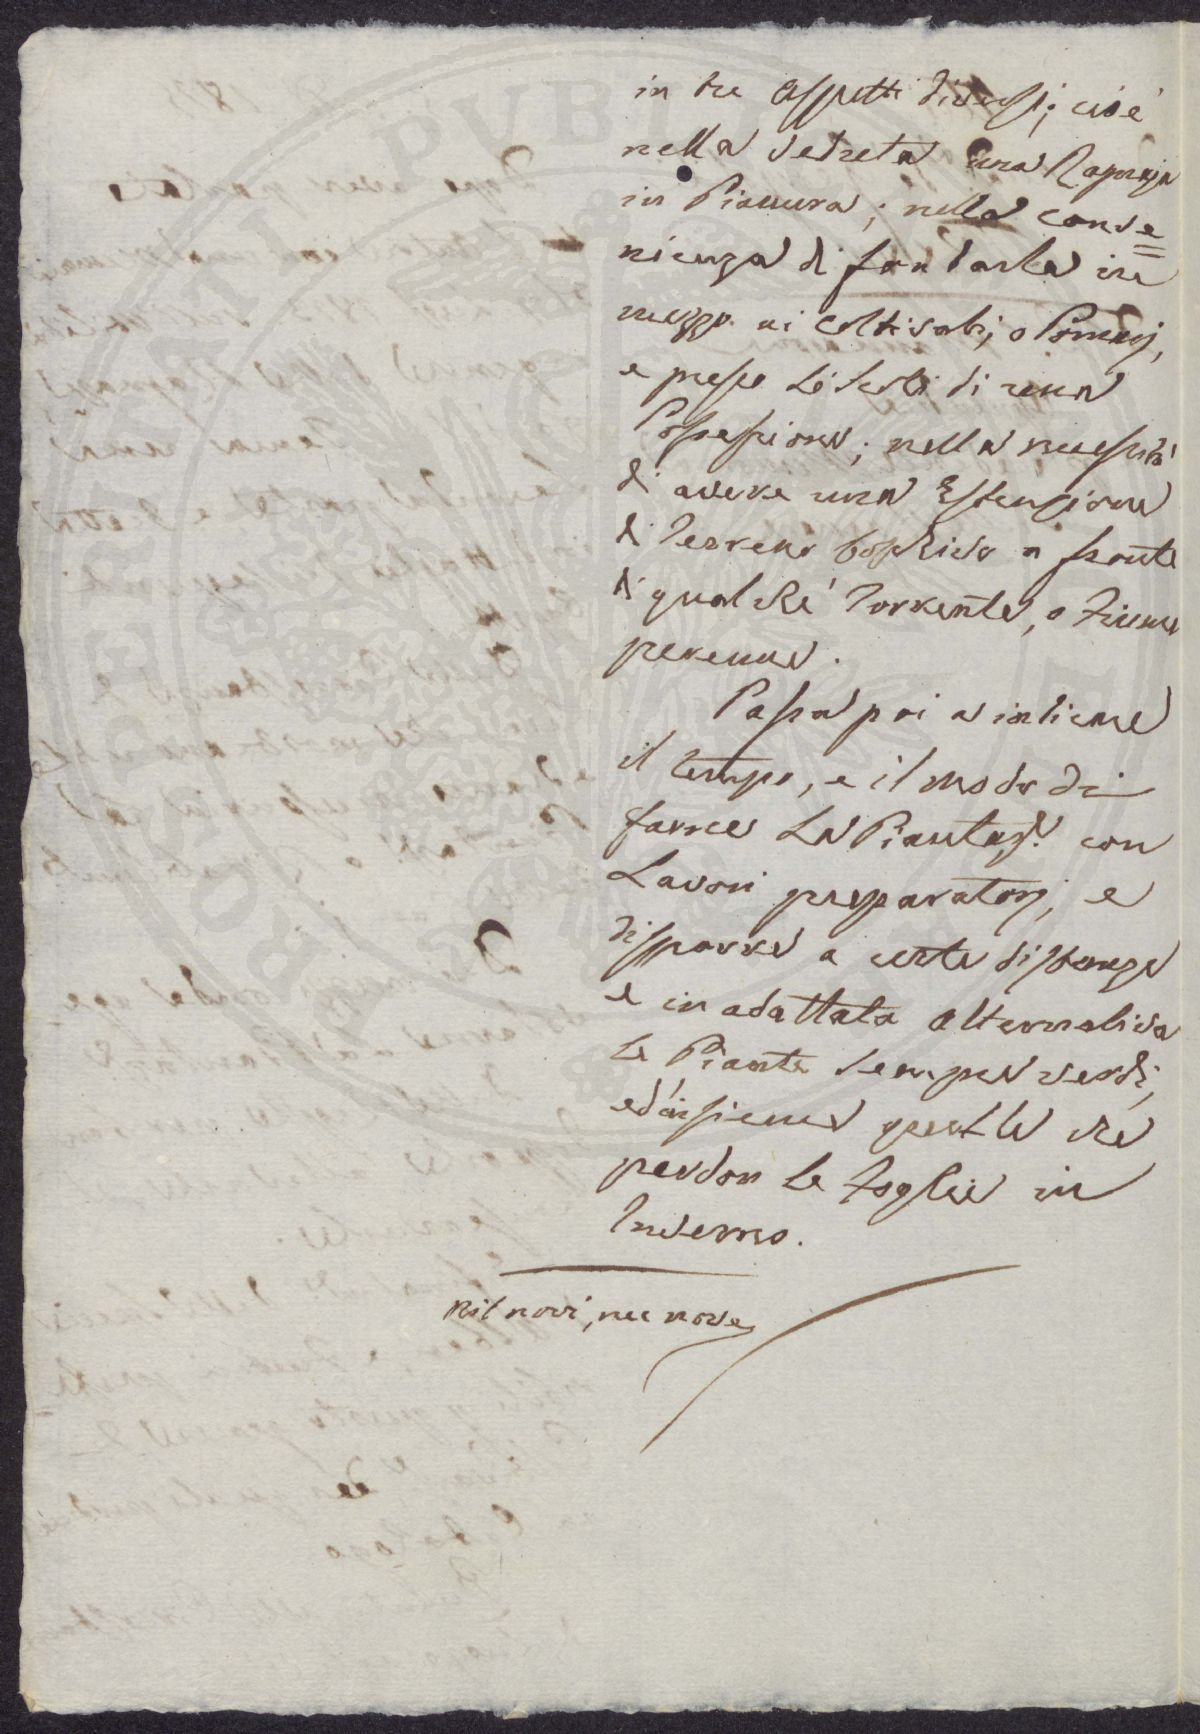 in tre aspetti diversi; cioè
nella veduta una Ragnaja
in Pianura; nella conve=
nienza di fondarla in
mezzo ai coltivati, o Pomarj,
e presso di una
Possessione; nella necessità
di avere una Estensione
di Terreno boschivo a fronte
di qualche Torrente, o Fiume
perenne.
Passa poi a indicare
il tempo, e il modo di
farne la Piantagne con
Lavori preparatorj, e
disporre a certe distanze
e in adattata alternativa
le Piante sempre verdi,
ed insieme quelle che
perdon le foglie in
Inverno.
Nil novi, nec nove